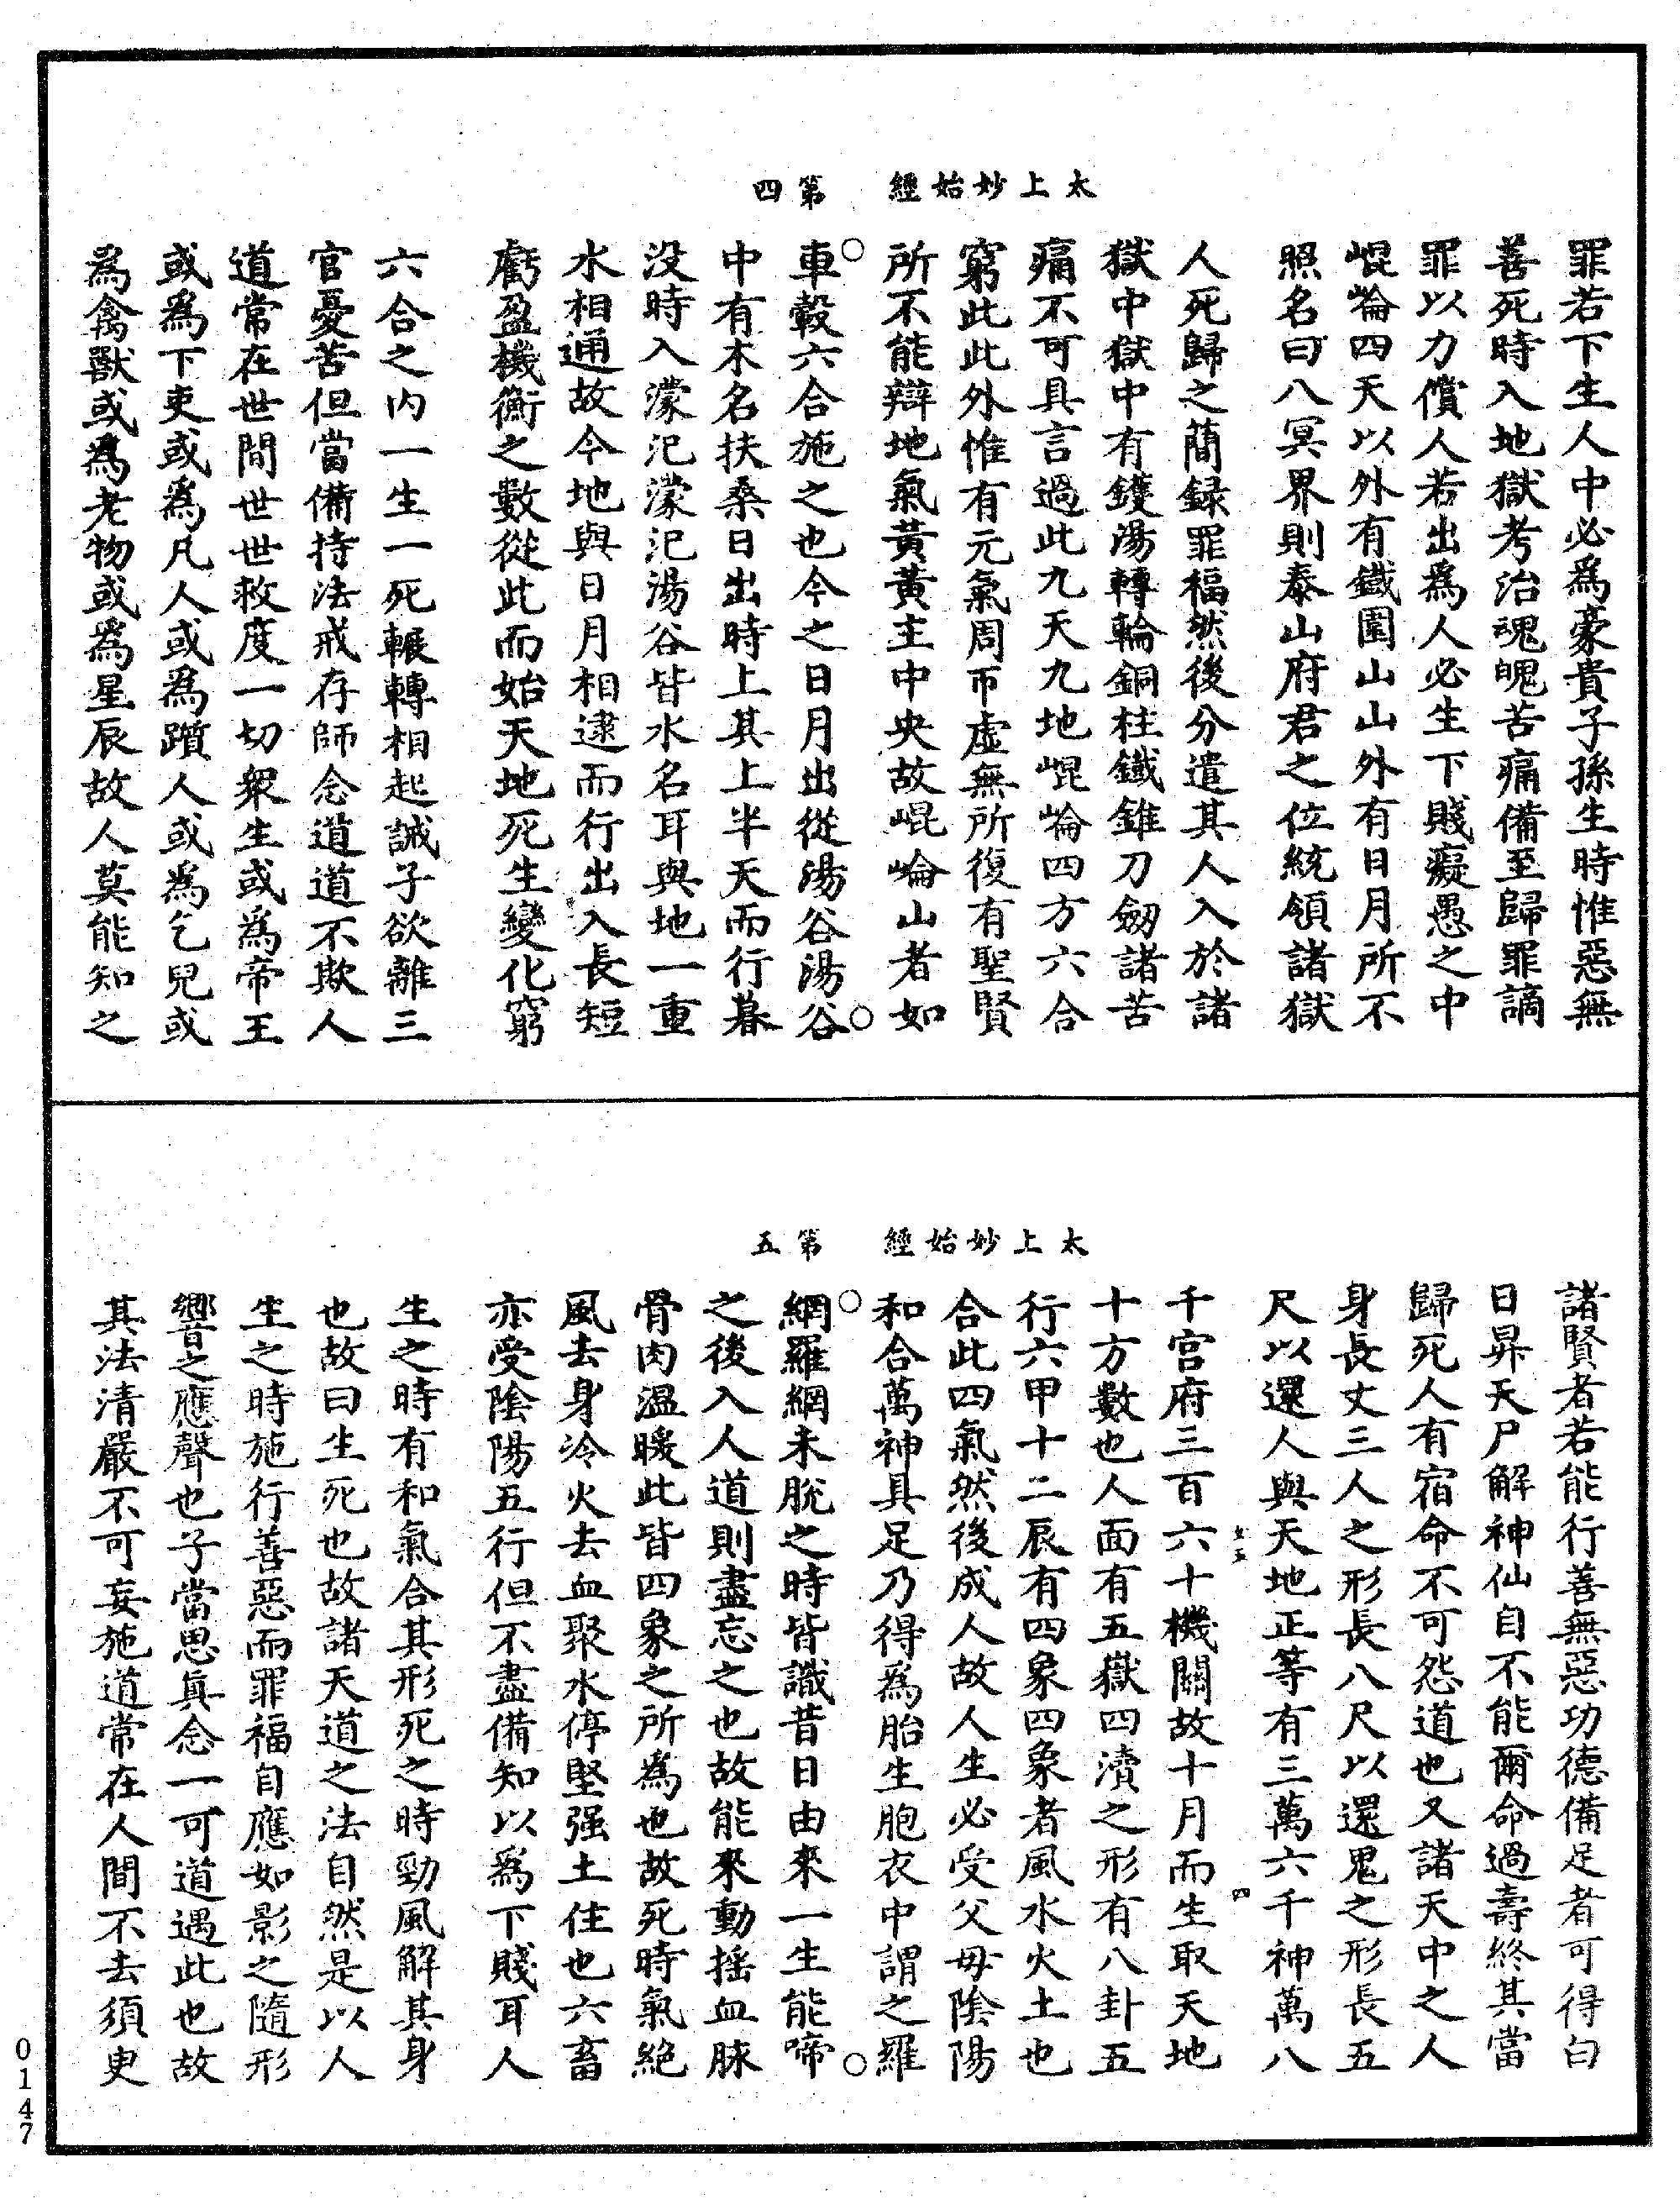 太上妙始經　第四
罪若下生人中必爲豪貴子孫生時惟惡無
善死時入地獄考治魂魄苦痛備至歸罪謫
罪以力償人若出爲人必生下賤癡愚之中
崐崘四天以外有鐵圍山山外有日月所不
照名曰八冥界則泰山府君之位統領諸獄
人死歸之簡録罪福然後分遣其人入於諸
獄中獄中有鑊湯轉輪銅柱鐵錐刀劒諸苦
痛不可具言過此九天九地崐崘四方六合
窮此此外惟有元氣周帀虛無所復有聖賢
所不能辯地氣黃黃主中央故崐崘山者如
車轂六合施之也今之日月出從湯谷湯谷
中有木名扶桑日出時上其上半天而行暮
没時入濛汜濛汜湯谷皆水名耳與地一重
水相通故今地與日月相逮而行出入長短
虧盈機衡之數從此而始天地死生變化窮
六合之内一生一死輾轉相起誠子欲離三
官憂苦但當備持法戒存師念道道不欺人
道常在世間世世救度一切衆生或爲帝王
或爲下吏或爲凡人或爲躓人或爲乞兒或
爲禽獸或爲老物或爲星辰故人莫能知之
太上妙始經　第五
諸賢者若能行善無惡功德備足者可得白
日昇天尸解神仙自不能爾命過壽終其當
歸死人有宿命不可怨道也又諸天中之人
身長丈三人之形長八尺以還鬼之形長五
尺以還人與天地正等有三萬六千神萬八
千宫府三百六十機關故十月而生取天地
十方數也人面有五嶽四瀆之形有八卦五
行六甲十二辰有四象四象者風水火土也
合此四氣然後成人故人生必受父母陰陽
和合萬神具足乃得爲胎生胞衣中謂之羅
網羅網未脫之時皆識昔日由來一生能啼
之後入人道則盡忘之也故能來動搖血脉
骨肉溫暖此皆四象之所爲也故死時氣絶
風去身冷火去血聚水停堅强土住也六畜
亦受陰陽五行但不盡備知以爲下賤耳人
生之時有和氣合其形死之時勁風解其身
也故曰生死也故諸天道之法自然是以人
生之時施行善惡而罪福自應如影之隨形
響之應聲也子當思眞念一可道遇此也故
其法清嚴不可妄施道常在人間不去須臾
0147